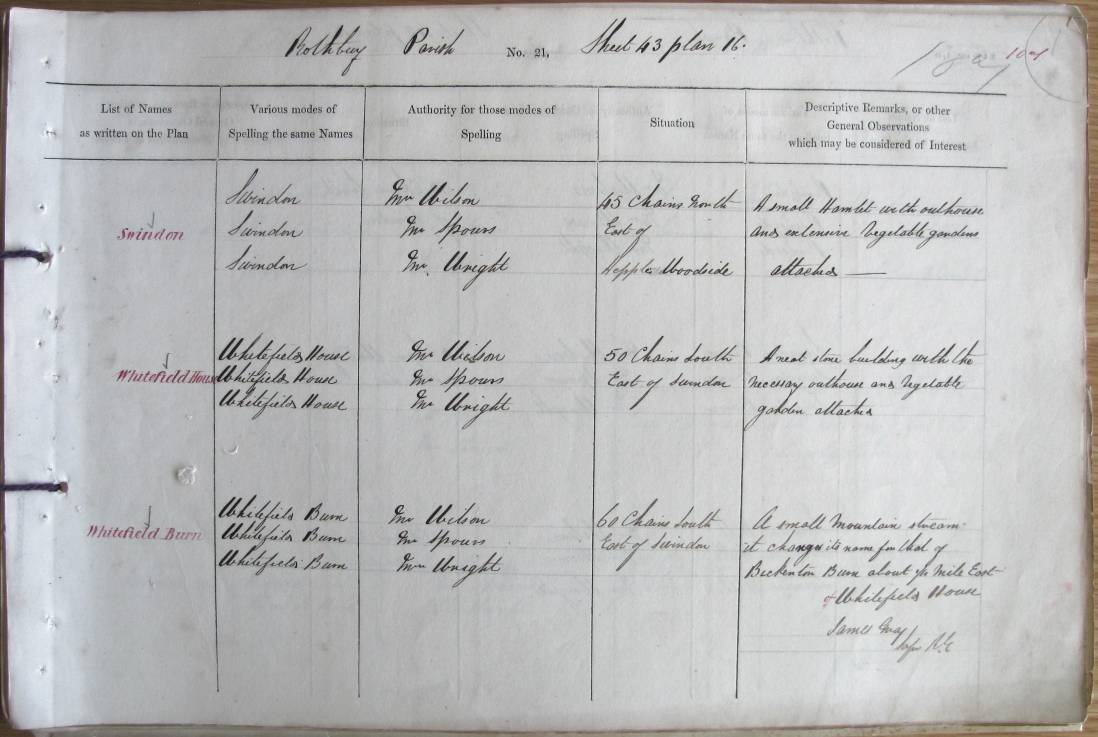 Rothbury Parish No. 21, Sheet 43 plan 16.
List of Names
as written on the Plan
Various modes of
Spelling the same Names
Authority for those modes of
Spelling
Situation
Descriptive Remarks, or other
General Observations
which may be considered of Interest
Swindon
Swindon
Swindon
Swindon
Mr Wilson
Mr Spours
Mr Wright
45 Chains North
East of
Hepple Woodside
A small Hamlet with outhouse
and extensive Vegetable gardens
attached —
Whitefield House
Whitefield House
Whitefield House
Whitefield House
Mr Wilson
Mr Spours
Mr Wright
50 Chains South
East of Swindon
A neat stone building with the
necessary outhouse and Vegetable
garden attached
Whitefield Burn
Whitefield Burn
Whitefield Burn
Whitefield Burn
Mr Wilson
Mr Spours
Mr Wright
60 Chains South
East of Swindon
A small Mountain stream
it changes its name for that of
Bickenton Burn about ½ Mile East
of Whitefield House
James
R.E